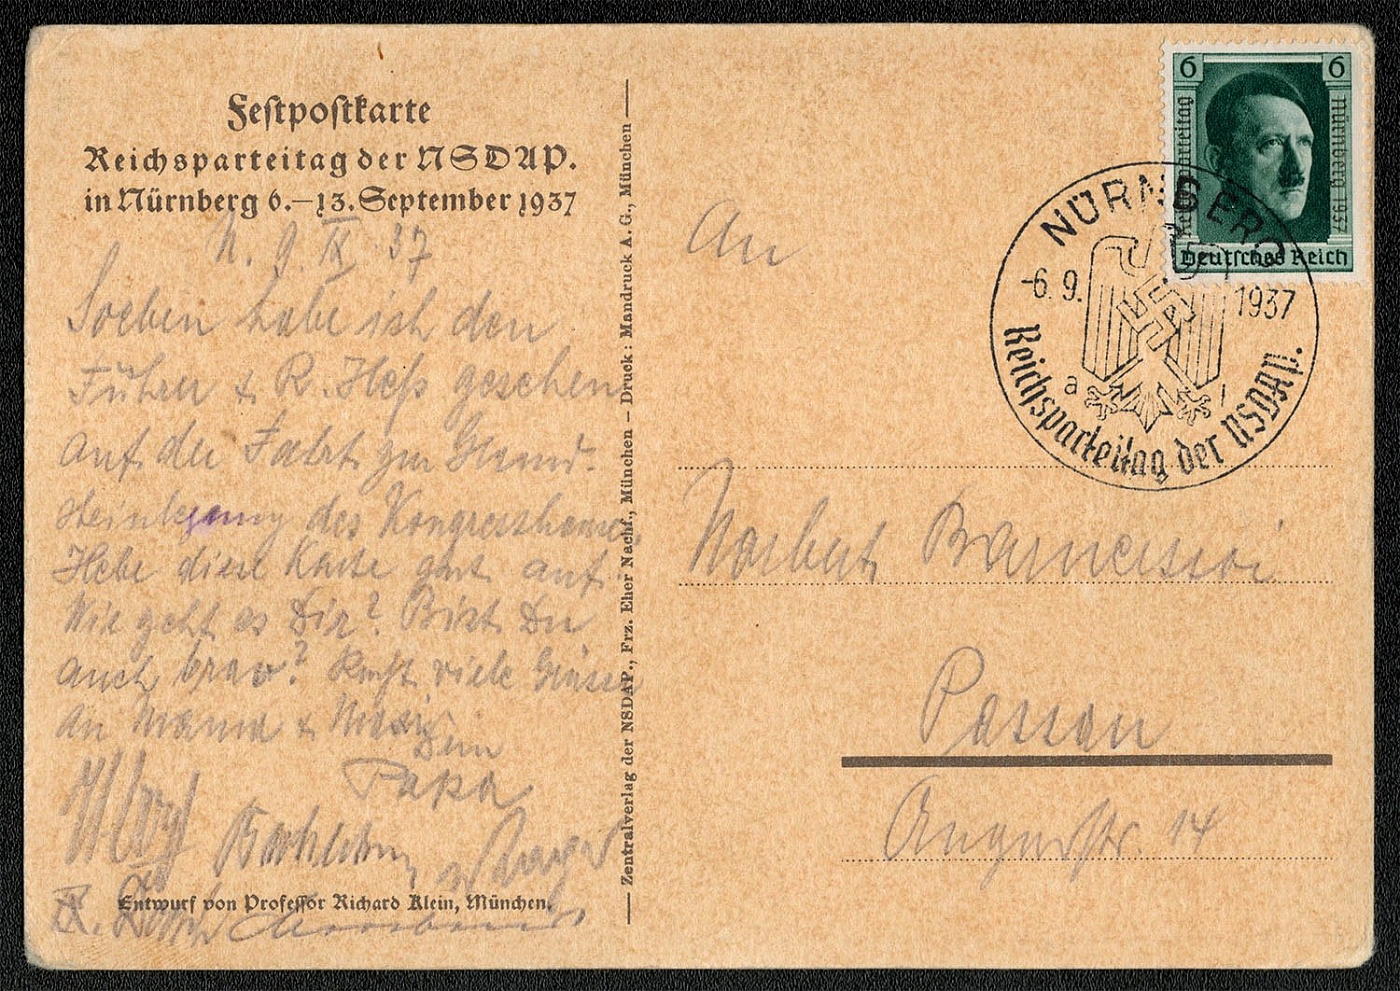 Festpostkarte
Reichsparteitag der NSDAP.
in Nürnberg 6.–13. September 1937
N. 9. IX 37
Soeben habe ich den
Führer & R. Heß gesehen
auf der Fahrt zur Grund-
steinlegung des
Hebe diese Karte gut auf.
Wie geht es Dir? Bist Du
auch brav? viele Grüsse
an Mama &
Dein
Papa
Entwurf von Professor Richard Klein, München.
Zentralverlag der NSDAP., Frz. Eher Nachf., München – Druck: Mandruck A. G., München
6 6
Reichsparteitag
Nürnberg 1937
Deutsches Reich
NÜRNBERG
-6. 9. 1937
a
Reichsparteitag der NSDAP.
An
Norbert
Passau
14